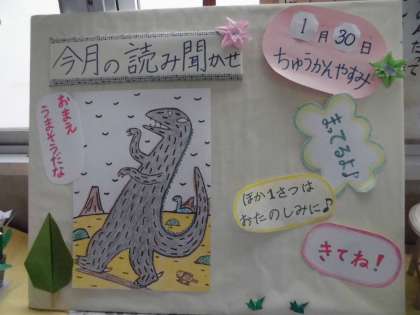 今月の読み聞かせ
1月30日
ちゅうかんやすみ
おまえ
うまそうだな
まってるよ♪
ほか1さつは
おたのしみに♪
きてね!